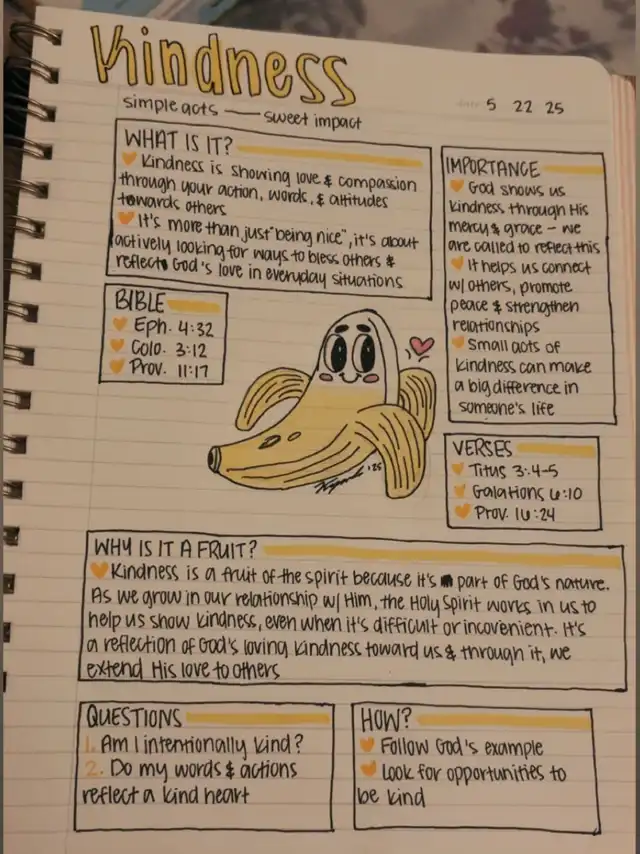 Kindness
simple acts — sweet impact
date 5 22 25
WHAT IS IT?
Kindness is showing love & compassion
through your action, words, & attitudes
towards others
It's more than just "being nice", it's about
actively looking for ways to bless others &
reflect God's love in everyday situations
IMPORTANCE
God shows us
kindness through His
mercy & grace - we
are called to reflect this
It helps us connect
w/ others, promote
peace & strengthen
relationships
Small acts of
kindness can make
a big difference in
someone's life
BIBLE
Eph. 4:32
Colo. 3:12
Prov. 11:17
'25
VERSES
Titus 3:4-5
Galations 6:10
Prov. 16:24
WHY IS IT A FRUIT?
Kindness is a fruit of the spirit because it's part of God's nature.
As we grow in our relationship w/ Him, the Holy Spirit works in us to
help us show kindness, even when it's difficult or incovenient. It's
a reflection of God's loving kindness toward us & through it, we
extend His love to others
QUESTIONS
1. Am I intentionally kind?
2. Do my words & actions
reflect a kind heart
HOW?
Follow God's example
Look for opportunities to
be kind